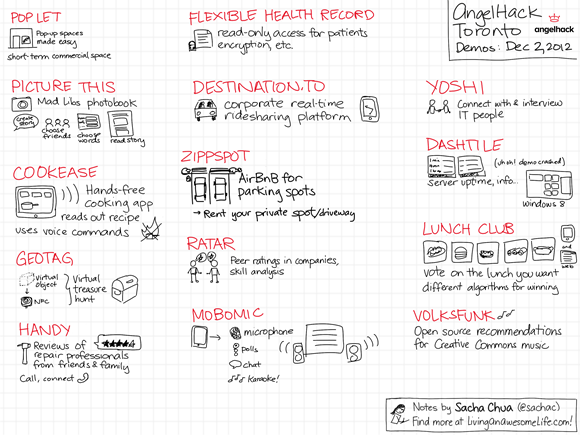 POP LET
Pop-up spaces
made easy
short-term commercial space
PICTURE THIS
Mad Libs photobook
create story
choose
friends
choose
words
read story
COOKEASE
Hands-free
cooking app
reads out recipe
uses voice commands
GEOTAG
Virtual
object
NFC
Virtual
treasure
hunt
HANDY
Reviews of
repair professionals
from friends & family
Call, connect
FLEXIBLE HEALTH RECORD
read-only access for patients
encryption, etc.
DESTINATION.TO
corporate real-time
ridesharing platform
ZIPPSPOT
AirBnB for
parking spots
→ Rent your private spot/driveway
RATAR
Peer ratings in companies,
skill analysis
MOBOMIC
microphone
polls
chat
Karaoke!
AngelHack
Toronto
angelhack
Demos: Dec 2, 2012
YOSHI
Connect with & interview
IT people
DASHTILE
(uh oh! demo crashed)
server uptime, info...
Windows 8
LUNCH CLUB
and
vote on the lunch you want
different algorithms for winning
VOLKSFUNK
Open source recommendations
for Creative Commons music
Notes by Sacha Chua (@sachac)
Find more at livinganawesomelife.com!